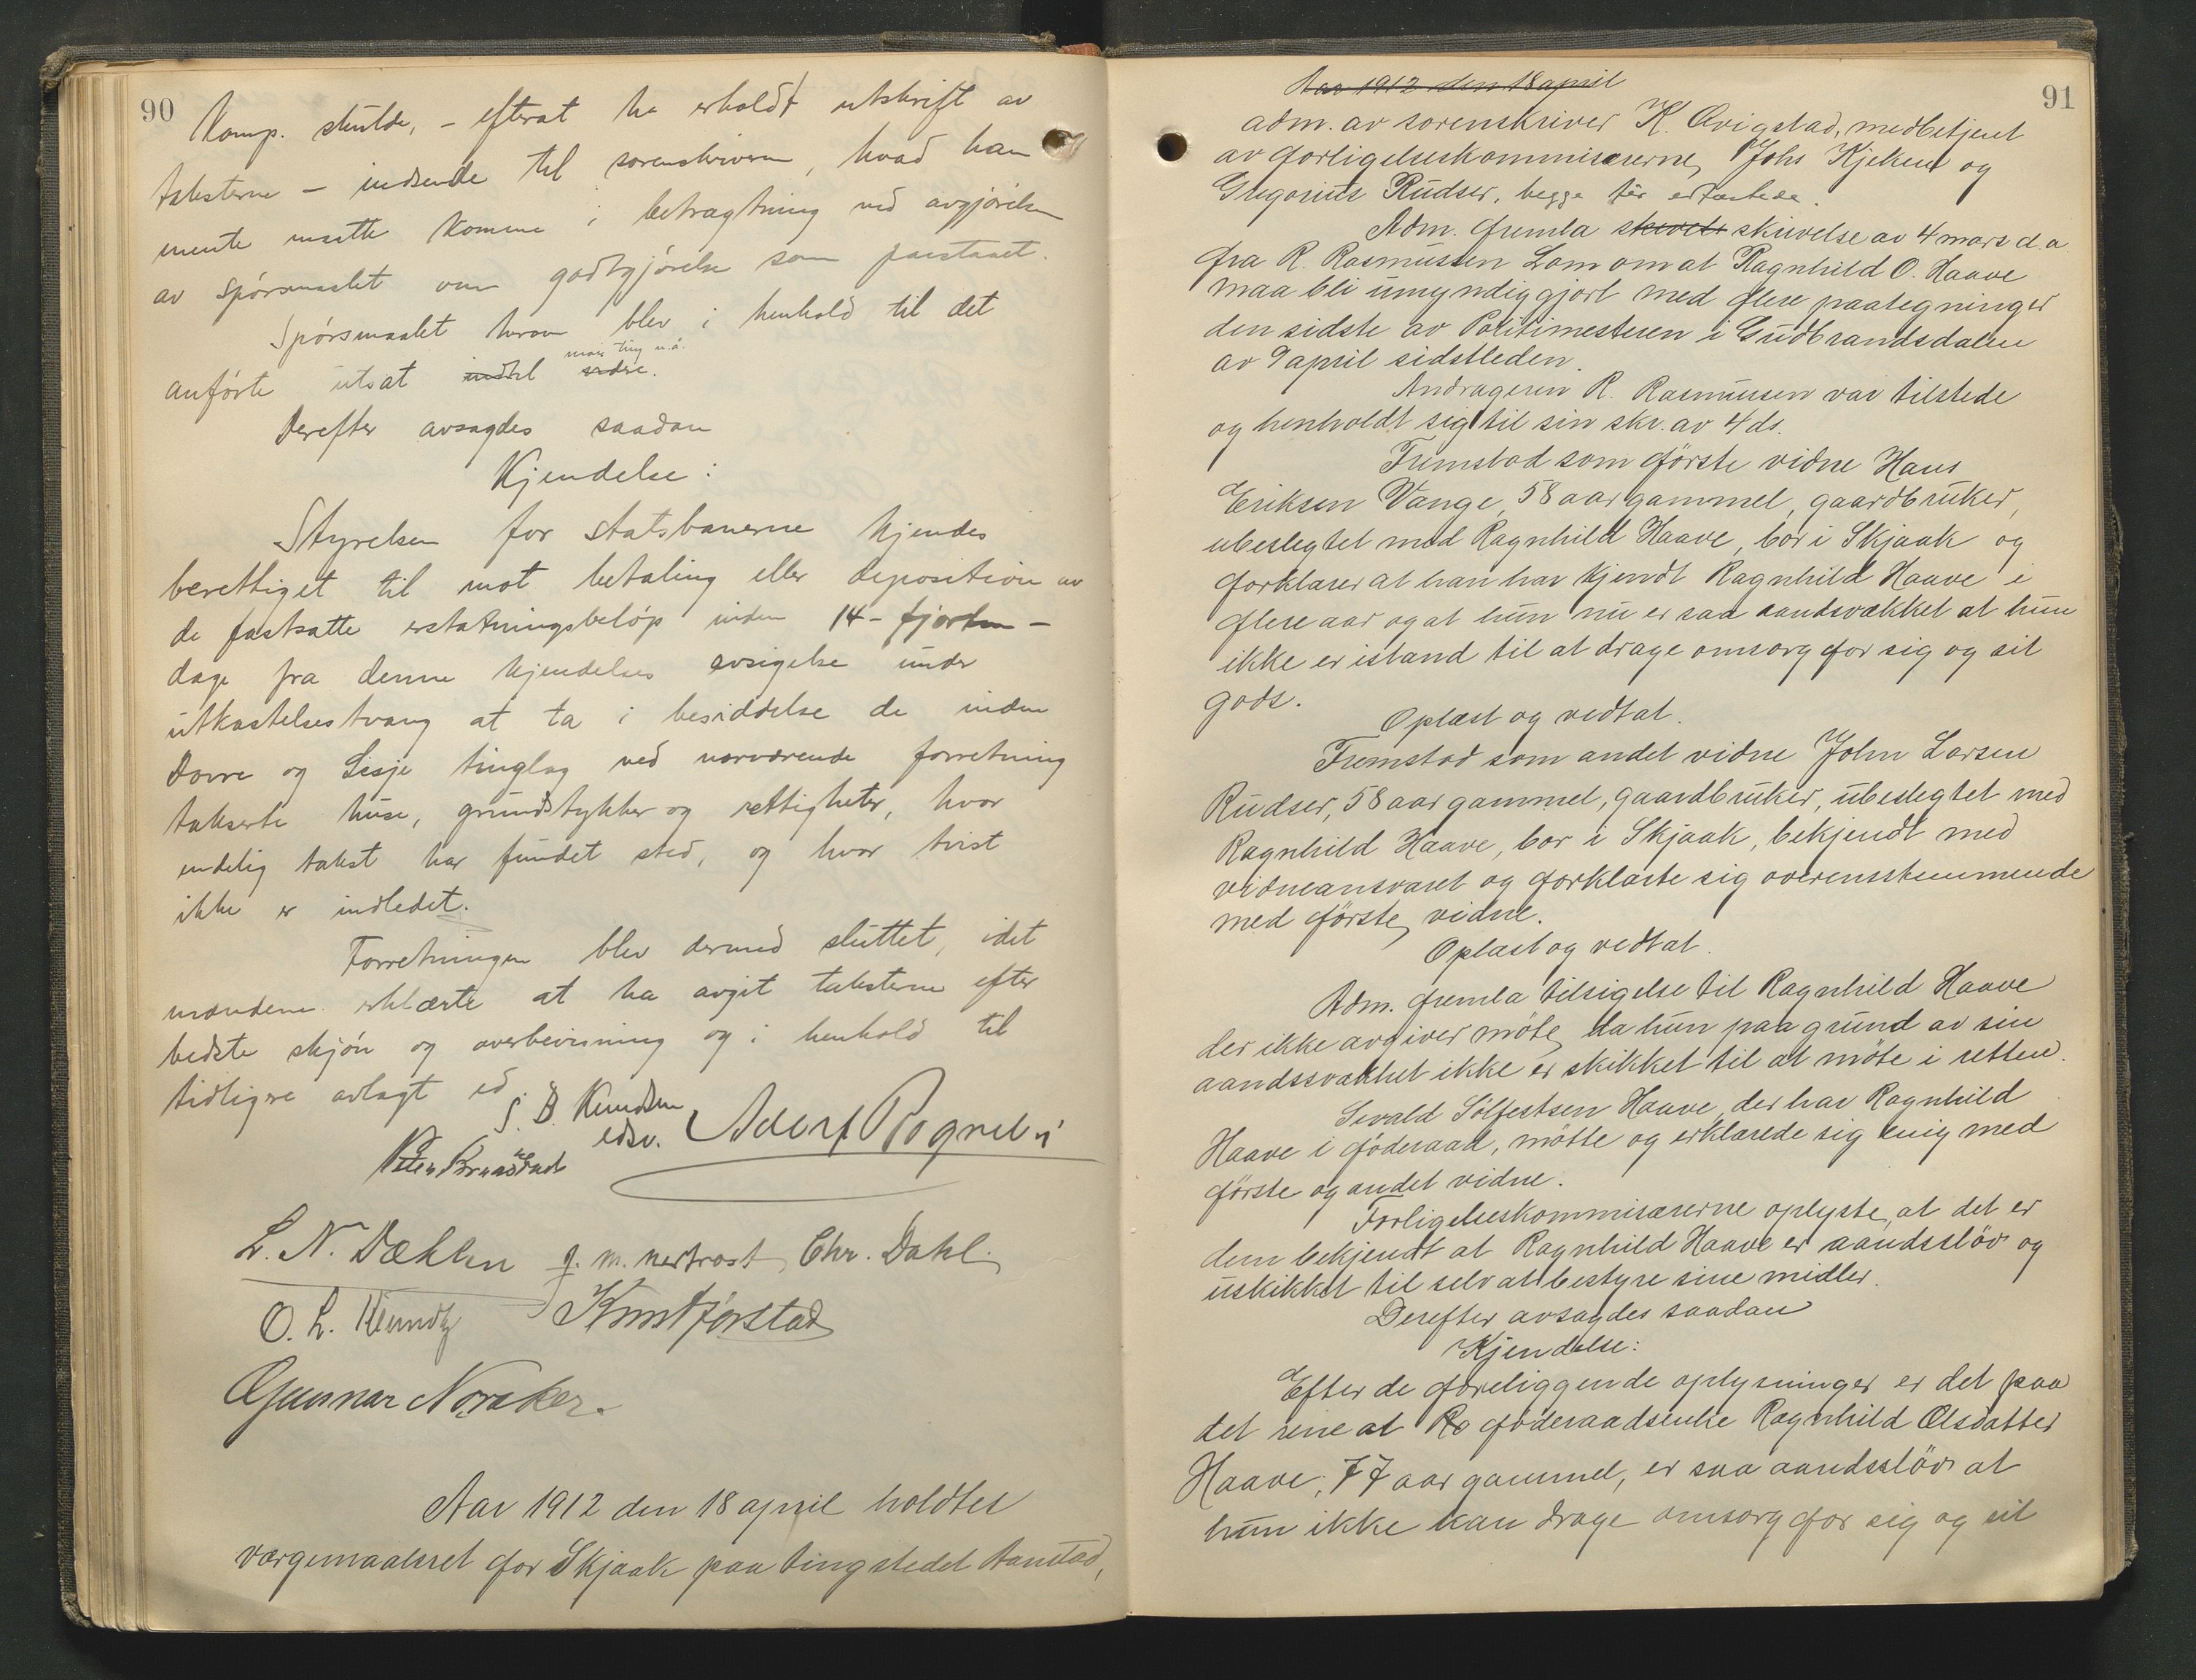 90
Komp. skulde, - efterat ha erholdt utskrift av
taksterne - indsende til sorenskriveren, hvad han
mente maatte komme i betragtning ved avgjörelsen
av spörsmaalet om godtgjörelse som paastaaet.
Spörsmaalet herom blev i henhold til det
anförte utsat indtil videre.
Derefter avsagdes saadan
Kjendelse:
Styrelsen for Statsbanerne kjendes
berettiget til mot betaling eller deposition av
de fastsatte erstatningsbelöp inden 14 - fjorten -
dage fra denne kjendelses avsigelse under
utkastelsestvang at ta i besiddelse de inden
Dovre og Lesje tinglag ved nærværende forretning
takserte huse, grundstykker og rettigheter, hvor
endelig takst har fundet sted, og hvor tvist
ikke er indledet.
Forretningen blev dermed sluttet, idet
mændene erklærte at ha avgit taksterne efter
bedste skjön og overbevisning og i henhold til
tidligere avlagt ed.
S. B. Knudsen
edsv.
L. N. Dæhlen J. M. Nertrost, Chr. Dahl.
O. L. Knut Jörstad
Gunnar Noraker.
Aar 1912 den 18 april holdtes
værgemaalsret for Skjaak paa tingstedet Aanstad,
91
Aar 1912 den 18 april
adm. av sorenskriver K. Qvigstad, medbetjent
av forligelseskommisærerne Johs Kjeken og
Gregorius Rudser, begge för edfæstede.
Adm. fremla skrivels skrivelse av 4 mars d.a.
fra R. Rasmussen Lom om at Ragnhild O. Haave
maa bli umyndiggjort med flere paategninger
den sidste av Politimesteren i Gudbrandsdalen
av 9 april sidstleden.
Andrageren R. Rasmussen var tilstede
og henholdt sig til sin skr. av 4 ds.
Fremstod som förste vidne Hans
Eriksen Vange, 58 aar gammel, gaardbruker,
ubeslegtet med Ragnhild Haave, bor i Skjaak og
forklarer at han har kjendt Ragnhild Haave i
flere aar og at hun nu er saa aandsvækket at hun
ikke er istand til at drage omsorg for sig og sit
gods.
Oplæst og vedtat.
Fremstod som andet vidne John Larsen
Rudser, 58 aar gammel, gaardbruker, ubeslegtet med
Ragnhild Haave, bor i Skjaak, bekjendt med
vidneansvaret og forklarte sig overensstemmende
med förste vidne.
Oplæst og vedtat.
Adm. fremla tilsigelse til Ragnhild Haave
der ikke avgiver möte, da hun paa grund av sin
aandssvakhet ikke er skikket til at möte i retten.
Sevald Sölfestsen Haave, der har Ragnhild
Haave i föderaad, mötte og erklærede sig enig med
förste og andet vidne.
Forligelseskommisærerne oplyste, at det er
dem bekjendt at Ragnhild Haave er aandsslöv og
uskikket til selv at bestyre sine midler.
Derefter avsagdes saadan
Kjendelse:
Efter de foreliggende oplysninger er det paa
det rene at Ra föderaadsenke Ragnhild Olsdatter
Haave, 77 aar gammel, er saa aandsslöv at
hun ikke kan drage omsorg for sig og sit